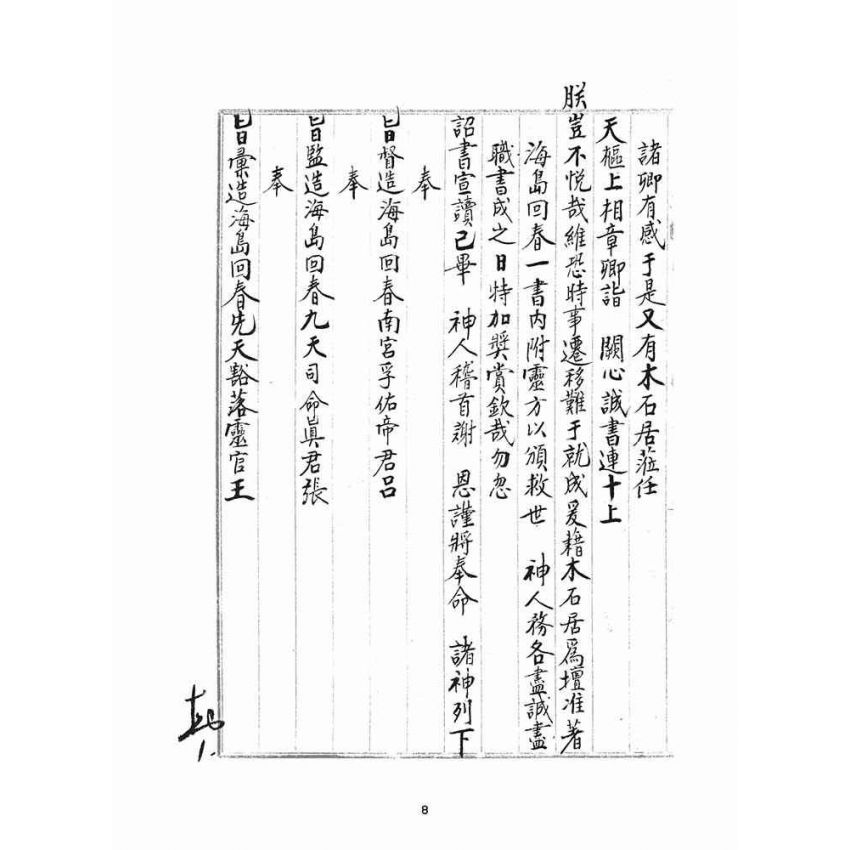 諸卿有感于是又有木石居蒞任
天樞上相章卿詣　闕心誠書連十上
朕豈不悦哉維恐時事遷移難于就成爰藉木石居為壇准著
海島回春一書内附靈方以頒救世　神人務各盡誠盡
職書成之日特加獎賞欽哉勿忽
詔書宣讀已畢　神人稽首謝　恩謹將奉命　諸神列下
奉
旨督造海島回春南宮孚佑帝君呂
奉
旨監造海島回春九天司命眞君張
奉
旨彙造海島回春先天豁落靈官王
8